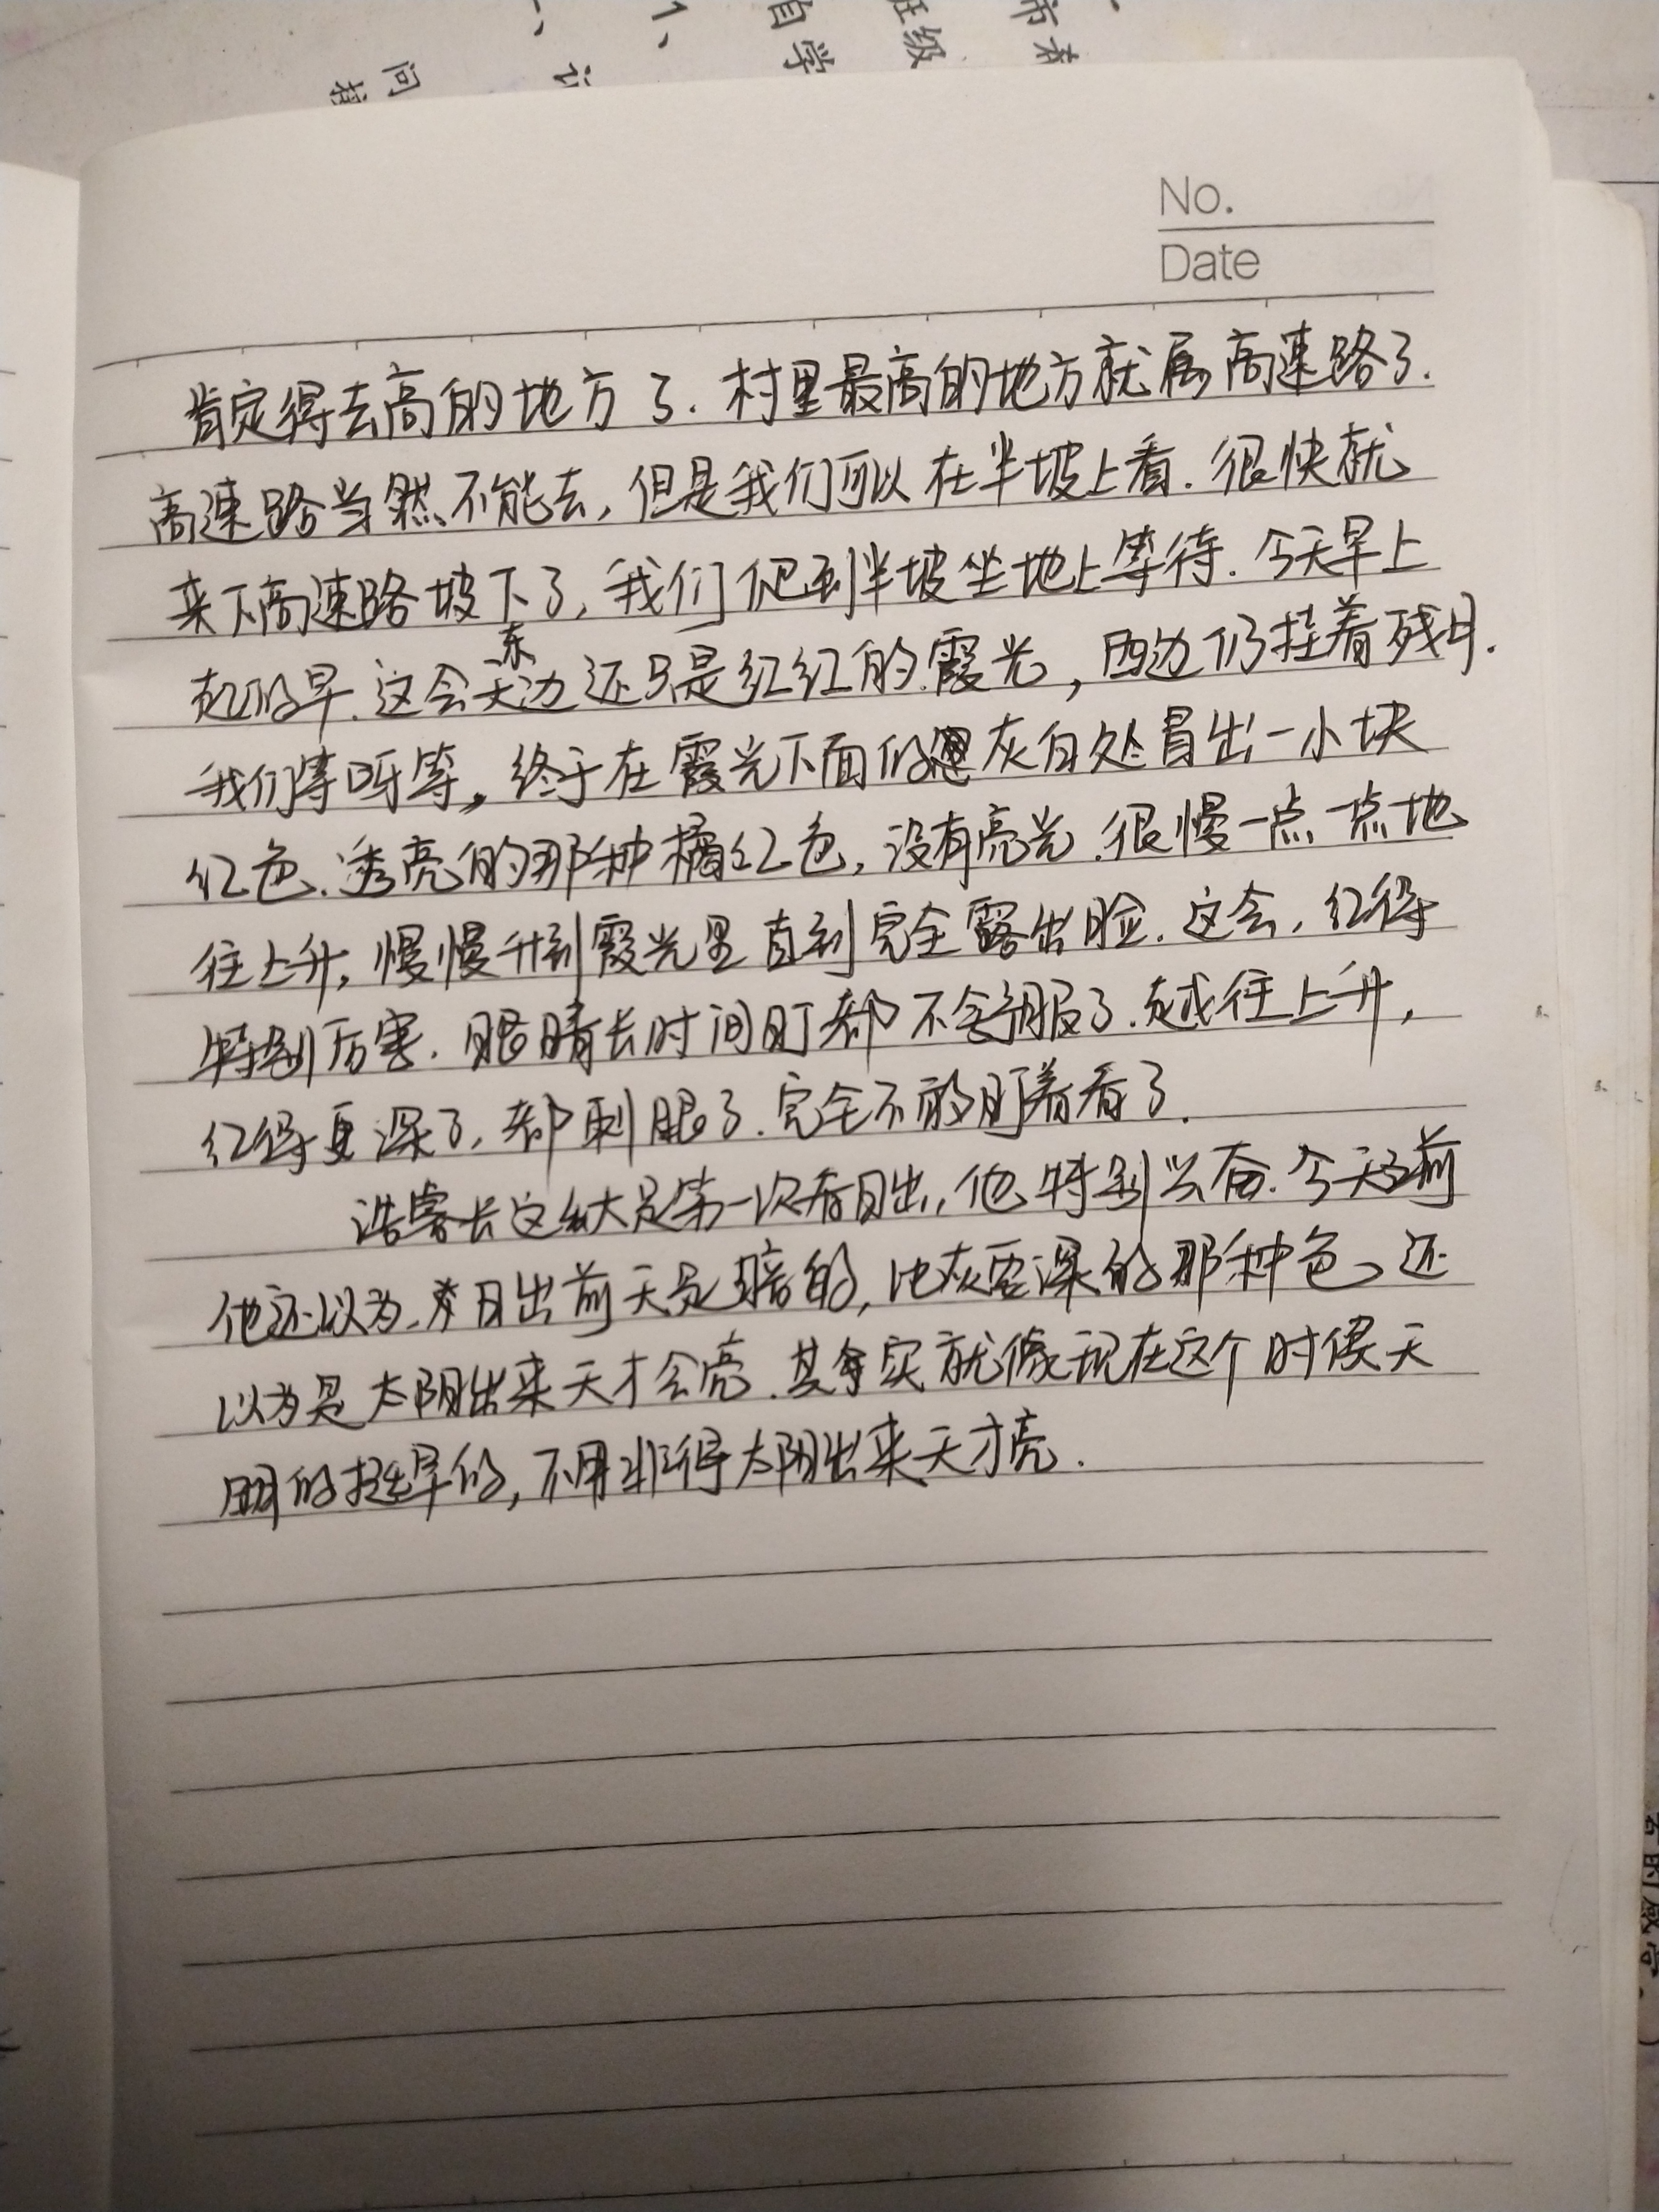 No.
Date
肯定得去高的地方了.村里最高的地方就属高速路了.
高速路当然不能去,但是我们可以在半坡上看.很快就
来下高速路坡下了,我们爬到半坡坐地上等待.今天早上
起的早.这会东边还只是红红的霞光,西边仍挂着残月.
我们等呀等,终于在霞光下面的灰白处冒出一小块
红色.透亮的那种橘红色,没有亮光.很慢一点一点地
往上升,慢慢升到霞光里直到完全露出脸.这会,红得
特别厉害.眼睛长时间盯都不舒服了.越往上升,
红得更深了,都刺眼了.完全不能盯着看了.
浩睿长这么大是第一次看日出,他特别兴奋.今天之前
他还以为,日出前天是暗的,比灰要深的那种色、还
以为是太阳出来天才会亮.其实就像现在这个时候天
明的挺早的,不用非得太阳出来天才亮.
自学
班级
问